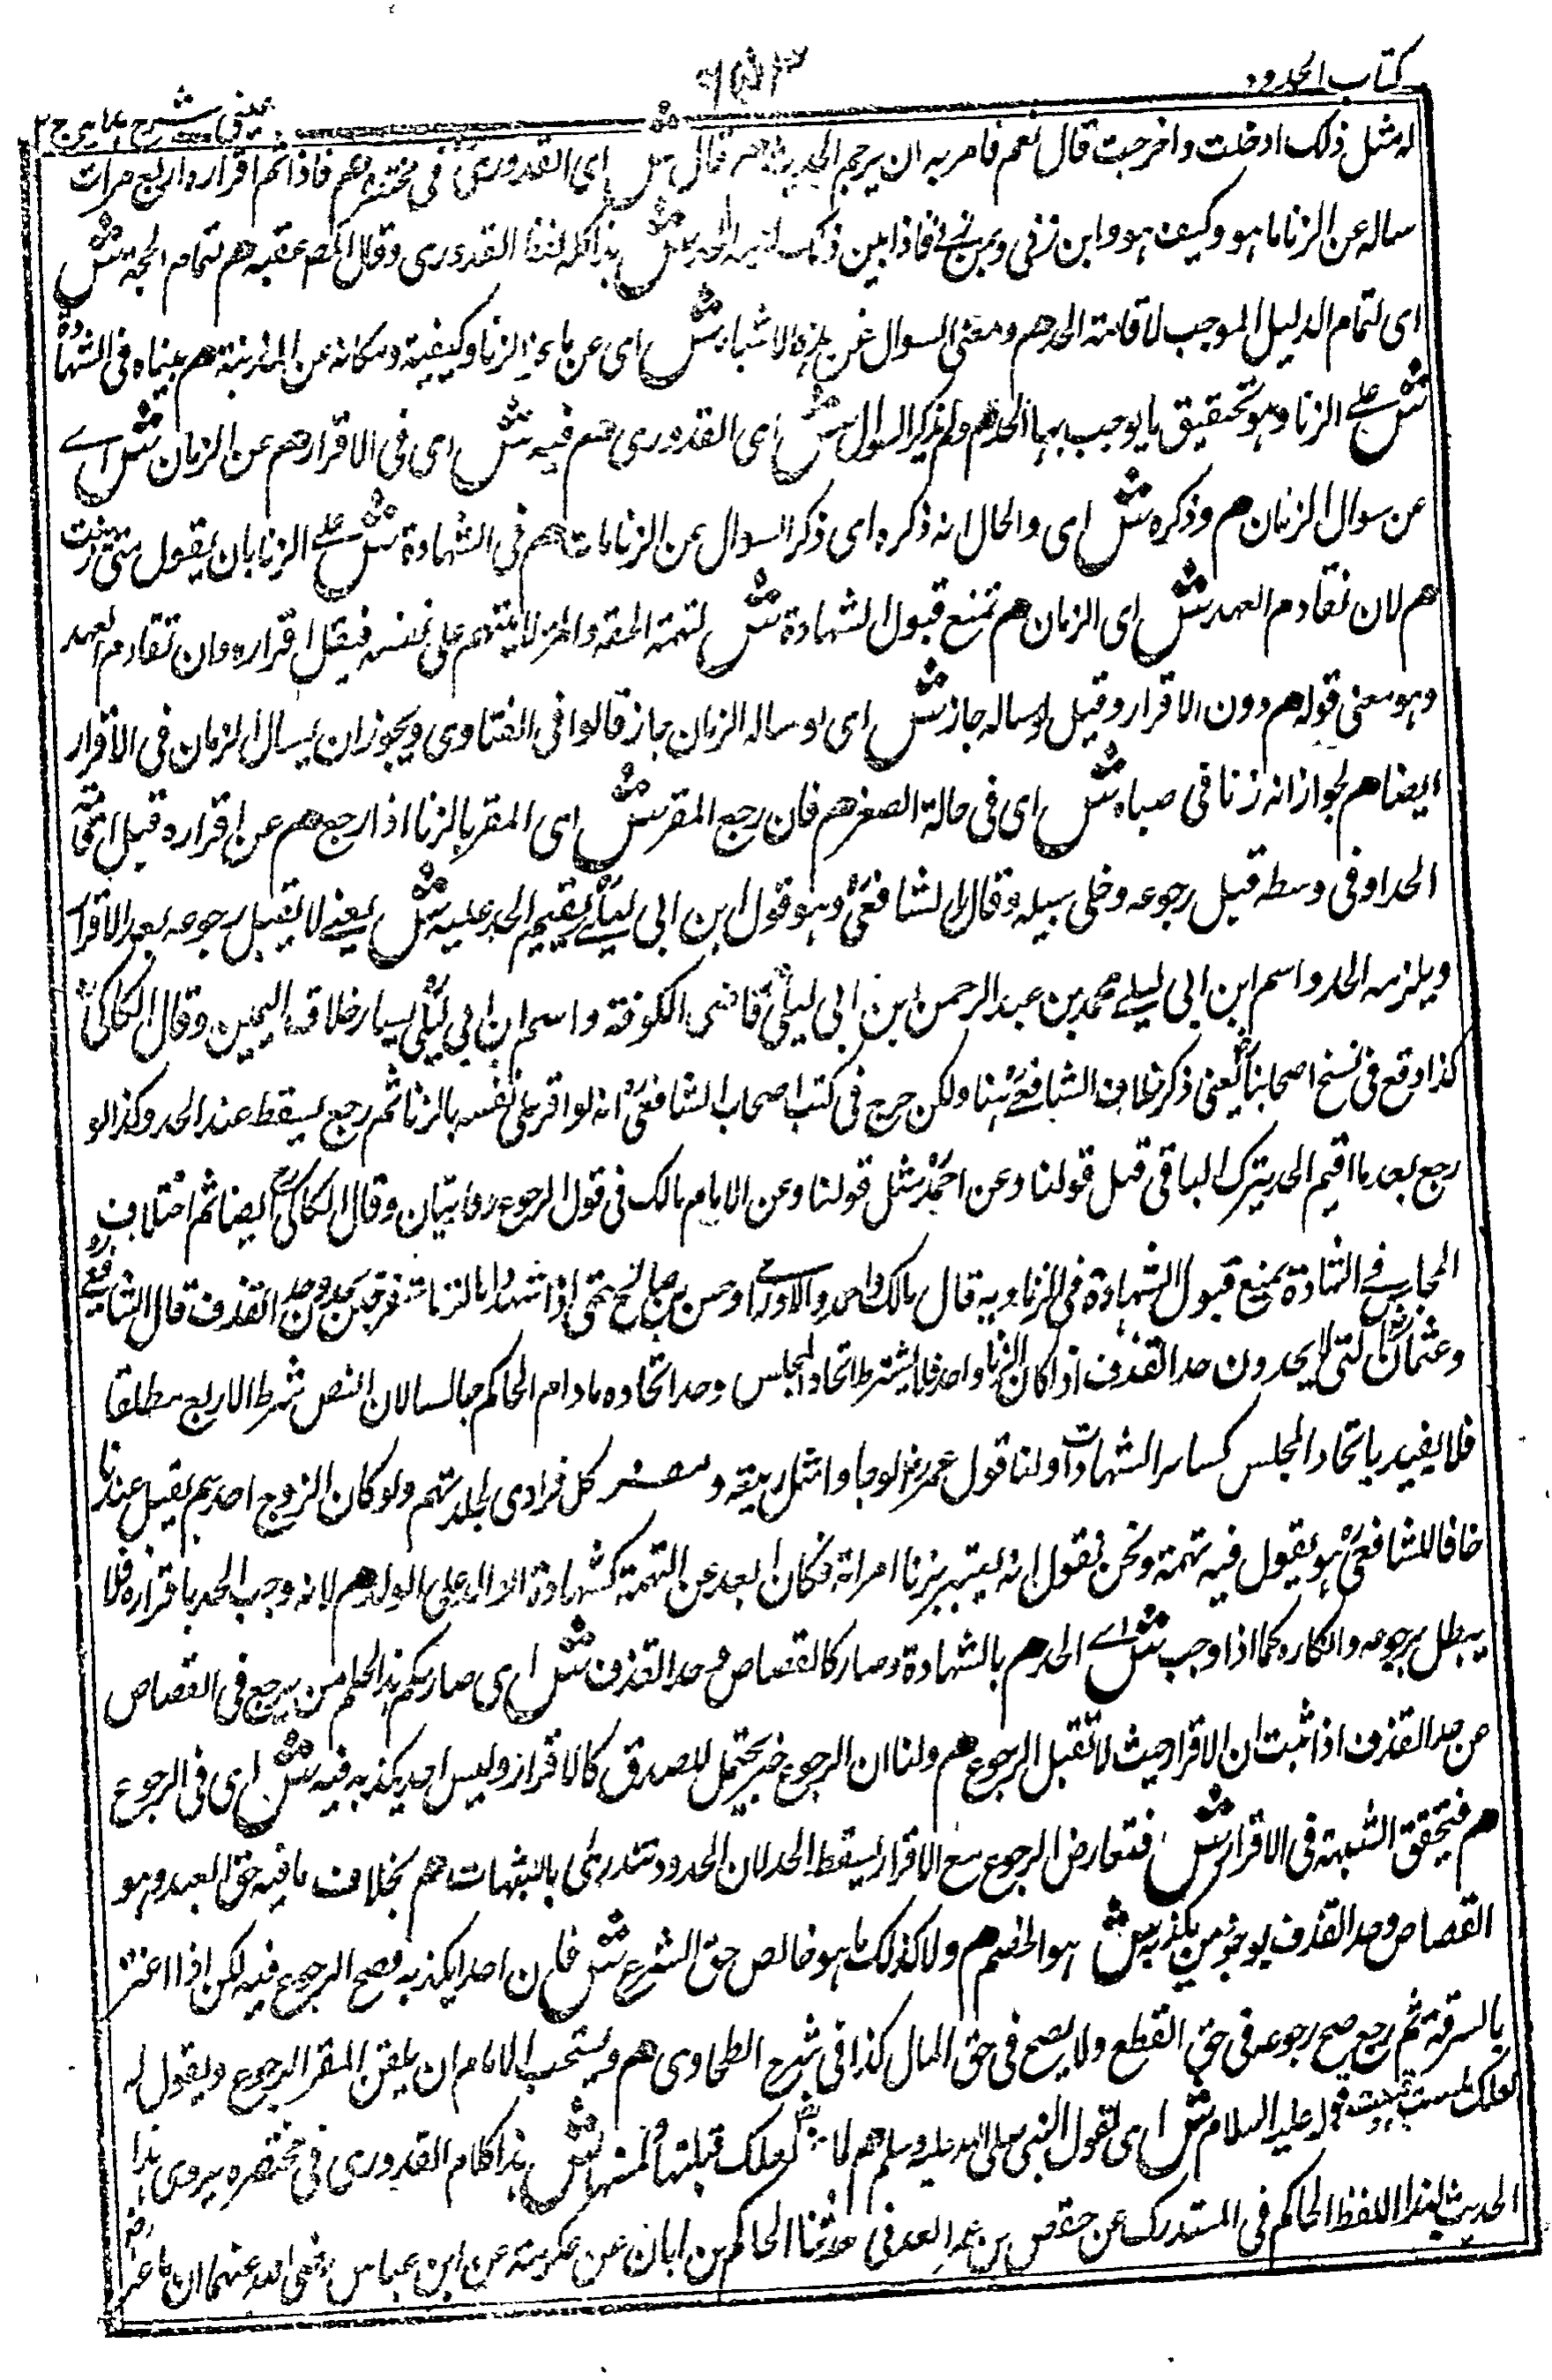 كتاب الحدود
٦٥٣
عينى شرح هدايه ج ٢
له مثل ذلك ادخلت واخرجت قال نعم فامر به ان يرجم الحديث هم قال ش اى القدورى فى مختصره هم فاذا تم اقراره اربع مرات
ساله عن الزنا ما هو وكيف هو واين زنى وبمن زنى فاذا بين ذلك لزمه الحد ش هذا كله لفظ القدورى وقال المصـ عقبه هم لتمام الحجة ش
اى لتمام الدليل الموجب لاقامة الحد هم ومعنى السوال عن هذه الاشياء ش اى عن ماهية الزنا وكيفيته ومكانه عن المزنية هم بيناه فى الشهادة
ش على الزنا وهو تحقيق ما يوجب بها الحد هم ولم يذكر السوال ش اى القدورى هم فيه ش اى فى الاقرار هم عن الزمان ش اے
عن سوال الزمان هم وذكره ش اى والحال انه ذكره اى ذكر السوال عن الزنا مات هم فى الشهادة ش على الزنا بان يقول متى زنيت
هم لان تقادم العهد ش اى الزمان هم تمنع قبول الشهادة ش لتهمة الحقد والمرء لا يتهم على نفسه فيقبل اقراره وان تقادم العهد
وهو معنى قوله هم دون الاقرار وقيل لو ساله جاز ش اى لو ساله الزمان جاز قالوا فى الفتاوى ويجوز ان يسال الزمان فى الاقرار
ايضا هم لجواز انه زنا فى صباه ش اى فى حالة الصغر هم فان رجع المقر ش اى المقر بالزنا اذا رجع هم عن اقراره قبل اقامة
الحد او فى وسطه قبل رجوعه وخلى سبيله وقال الشافعىؒ وهو قول ابن ابى ليلےؒ يقيم الحد عليه ش يعنے لا يقبل رجوعه بعد الاقرار
ويلزمه الحد واسم ابن ابى ليلے محمد بن عبد الرحمن ابن ابى ليلىؒ قاضى الكوفة واسم ابن ابى ليلىؒ يسار خلاف اليمين وقال الكاكىؒ
كذا وقع فى نسخ اصحابناؒ يعنى ذكر خلاف الشافعےؒ هنا ولكن حرج فى كتب اصحاب الشافعىؒ انه لو اقر على نفسه بالزنا ثم رجع يسقط عنه الحد وكذا لو
رجع بعد ما اقيم الحد يترك الباقى قبل قولنا وعن احمدؒ مثل قولنا وعن الامام مالك فى قول الرجوع روايتان وقال الكاكىؒ ايضا ثم اختلاف
المجالس فے الشهادة يمنع قبول الشهادة فى الزنا وبه قال مالك واحمد والاوزاعے وحسن بن صالح حتى اذا شهدوا بالزنا متفرقين يحدون حد القذف قال الشافعےؒ
وعثمان البتى لا يحدون حد القذف اذا كان الزنا واحد فلا يشترط اتحاد المجلس وحد اتحاده ما دام الحاكم جالسا لان النص شرط الاربع مطلقا
فلا يقيد باتحاد المجلس كسائر الشهادات ولنا قول عمررضـ لو جاوا مثل ربيعة ومضر كل فرادى لجلدتهم ولو كان الزوج احدهم يقبل عندنا
خلافا للشافعىؒ هو يقول فيه تهمة ونحن نقول انه يعتبر بزنا امراته فكان ابعد عن التهمة كشهادة الوالد على الولد هم لانه وجب الحد باقراره فلا
يبطل برجوعه وانكاره كما اذا وجب ش اے الحد هم بالشهادة وصار كالقصاص وحد القذف ش اى صار حكم هذا كحكم من يرجع فى القصاص
عن حد القذف اذا ثبت ان الاقرار حيث لا تقبل الرجوع هم ولنا ان الرجوع خبر يحتمل للصدق كالاقرار وليس احد يكذبه فيه ش اى فى الرجوع
هم فتحقق الشبهة فى الاقرار ش فتعارض الرجوع مع الاقرار ليسقط الحد لان الحدود تندرئى بالشبهات هم بخلاف ما فيه حق العبد وهو
القصاص وحد القذف يوجود من يكذبه ش هو الخصم هم ولا كذلك ما هو خالص حق الشرع ش فان احدا يكذبه فصح الرجوع فيه لكن اذا اعترف
بالسرقة ثم رجع صح رجوعه فى حق القطع ولا يصح فى حق المال كذا فى شرح الطحاوى هم ويستحب للامام ان يلقن المقر الرجوع ويقول له
لعلك لمست قبلت لقوله عليه السلام ش اى لقول النبى صلى الله عليه وسلم هم لماعز لعلك قبلتها لمستها ش هذا كلام القدورى فى مختصره يروى هذا
الحديث بهذا اللفظ الحاكم فى المستدرك عن حفص بن عمر العدنى حدثنا الحاكم بن ابان عن عكرمة عن ابن عباس رضى الله عنهما ان ماعز